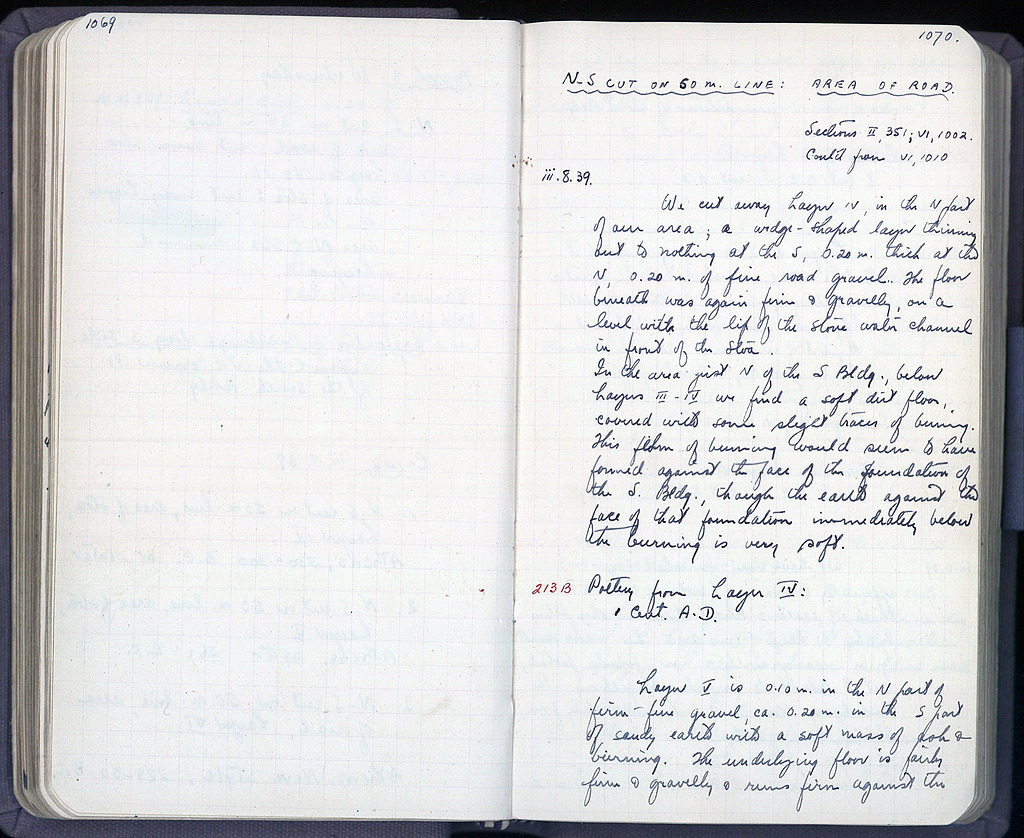 1069
1070.
N-S CUT ON 50 m. LINE: AREA OF ROAD.
Sections II, 351; VI, 1002.
Cont'd from VI, 1010
iii.8.39.
We cut away Layer IV, in the N part
of our area; a wedge-shaped layer thinning
out to nothing at the S, 0.20 m. thick at the
N, 0.20 m. of fine road gravel. The floor
beneath was again firm & gravelly, on a
level with the lip of the stone water channel
in front of the Stoa.
In the area just N of the S Bldg., below
Layers III-IV we find a soft dirt floor,
covered with some slight traces of burning.
This floor of burning would seem to have
formed against the face of the foundation of
the S. Bldg., though the earth against the
face of that foundation immediately below
the burning is very soft.
213 B Pottery from Layer IV:
1 Cent. A.D.
Layer V is 0.10 m. in the N part of
firm-fine gravel, ca. 0.20 m. in the S part
of sandy earth with a soft mass of ash &
burning. The underlying floor is fairly
firm & gravelly & runs firm against the